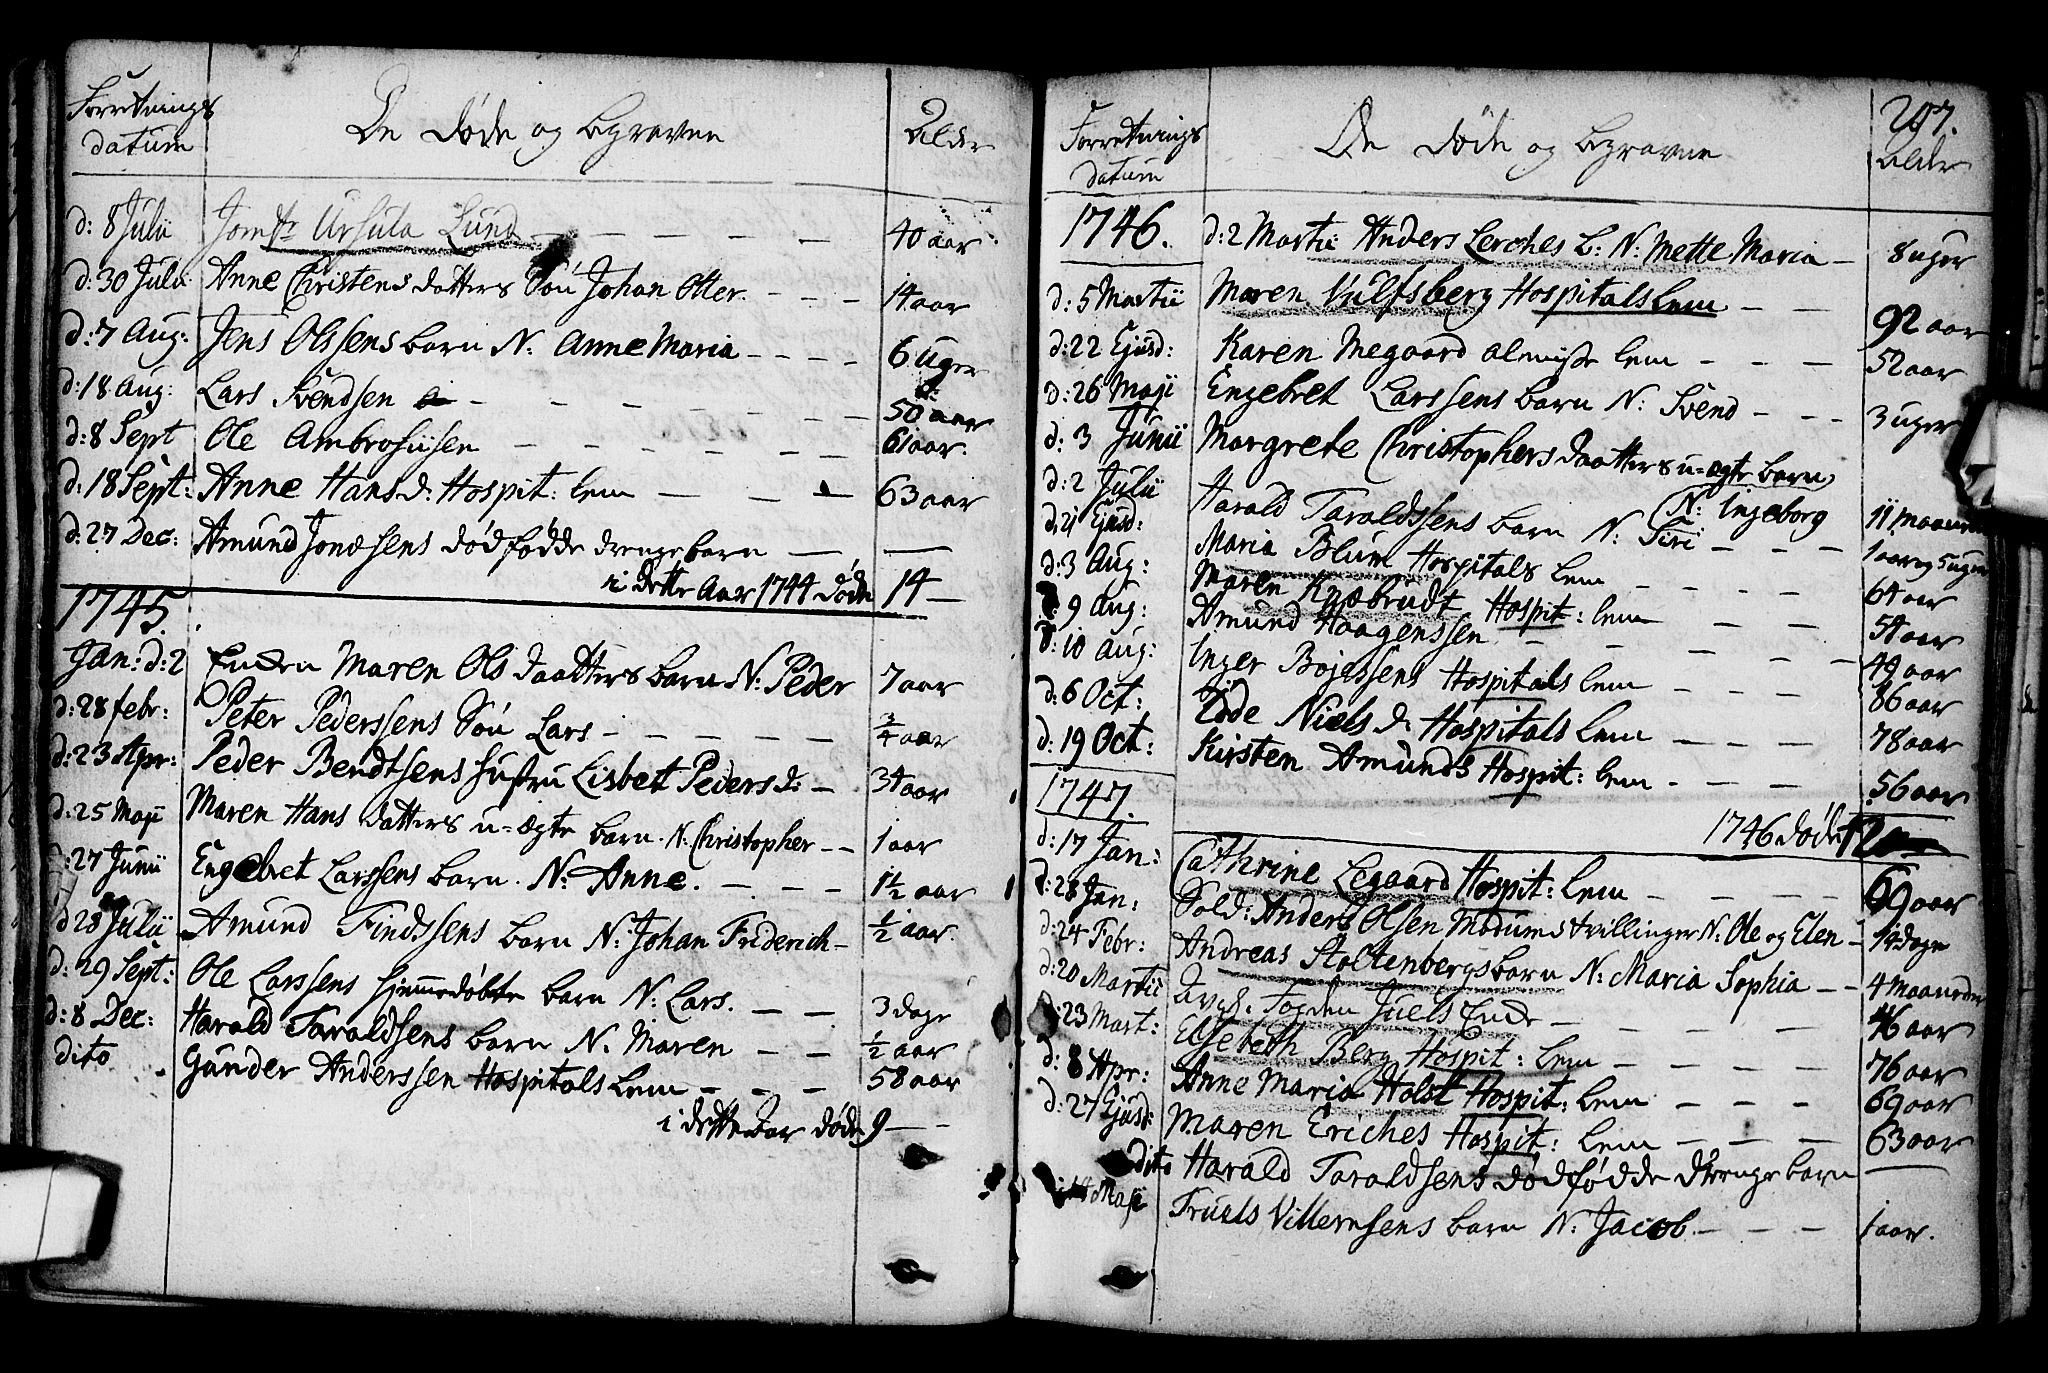 Forretnings
datum
De døde og begravne
Alder
d: 8 Julii Jomfr Ursula Lund 40 aar
d: 30 Julii Anne Christens datters Søn Johan Otter. 14 aar
d: 7 Aug: Jens Olssens barn N: Anne Maria 6 Uger
d: 18 Aug: Lars Svendsen 50 aar
d: 8 Sept Ole Ambrosiisen 61 aar.
d: 18 Sept: Anne Hans d. Hospit: lem 63 aar
d: 27 Dec: Amund Jonæsens dødfødde drenge barn
i dette Aar 1744 døde 14
1745.
Jan: d: 2 Maren Ols daatters barn N: Peder 7 aar
d: 28 febr: Peter Pederssens Søn Lars 3/4 aar
d: 23 Apr: Peder Bendtsens hustru Lisbet Peders d. 34 aar
d: 25 Maji Maren Hans datters u-ægte barn. N. Christopher 1 aar
d: 27 Junii Engebret Larssens barn. N: Anne. 1 1/2 aar
d 28 Julii Amund Findssens barn N: Johan Friderich 1/2 aar.
d: 29 Sept: Ole Larssens hjemmedøbte barn N: Lars. 3 dage
d: 8 Dec: Harald Taraldsens barn N. Maren 1/2 aar
dito Gunder Anderssen Hospitals Lem 58 aar
i dette Aar døde 9
207.
Forretnings
datum
De døde og begravne
Alder
1746. d: 2 Martii Anders Lerches b: N: Mette Maria 8 uger
d: 5 Martii Maren Vulfsberg Hospitals lem 92 aar
d: 22 Ejusd: Karen Megaard almisse lem 52 aar
d: 26 Maji Engebret Larssens barn N: Svend 3 uger
d: 3 Junii Margrete Christophers daatters u-ægte barn
N: Ingeborg 11 maaneder
d: 2 Julii Harald Taraldssens barn N: Siri 1 aar og 5 uger
d: 21 Ejusd: Maria Blum Hospitals lem 64 aar
d: 3 Aug: Maren Knæbrudt Hospit: lem 54 aar
9 Aug: Amund Haagenssen 49 aar
d: 10 Aug: Inger Bojessens Hospitals lem 86 aar
d: 6 Oct: Niels d. Hospitals lem 78 aar
d: 19 Oct: Kirsten Amunds Hospit: lem 56 aar
1746 døde 12
1747.
d: 17 Jan: Cathrine Legaard Hospit: lem 69 aar
d: 28 Jan: Sold: Anders Olsen Modums tvillinger N: Ole og Elen dage
d: 24 Febr: Andreas Stoltenbergs barn N: Maria Sophia 4 maaneder
d: 20 Martii Juels Encke 46 aar
d: 23 Mart: Elsebeth Berg Hospit: lem 76 aar
d: 8 Apr: Anne Maria Holst Hospit: lem 69 aar
d: 27 Ejusd: Maren Eriches Hospit: lem 63 aar
dito Harald Taraldsens dødfødde drenge barn
14 Maji Truels Villemsens barn N: Jacob. 1 aar.